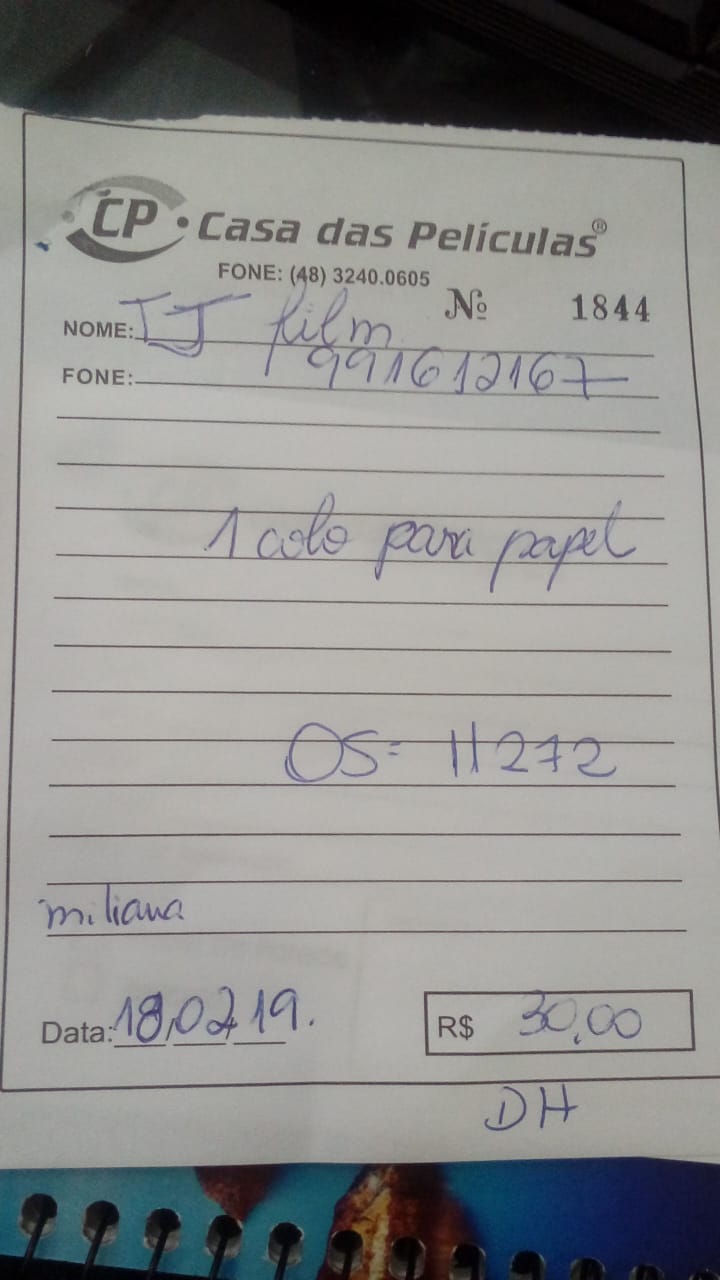 CP • Casa das Películas®
FONE: (48) 3240.0605
Nº 1844
NOME: JJ film
FONE: 991612167
1 colo para papel
OS= 11272
miliana
Data: 18,02,19.
R$ 30,00
DH